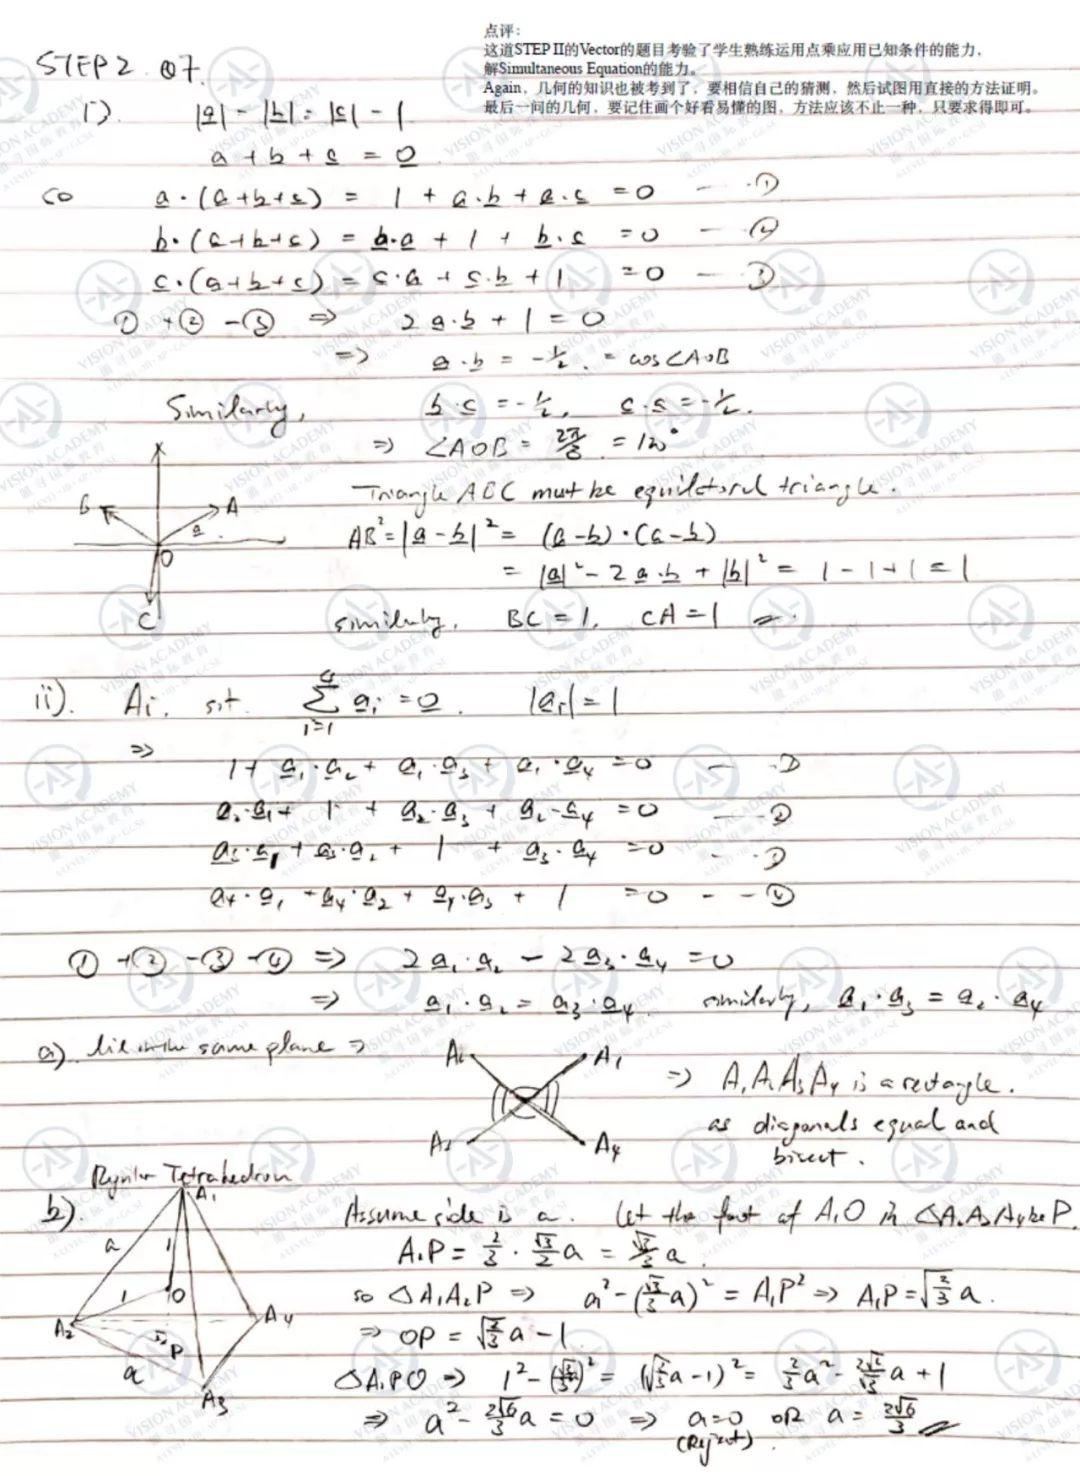 点评：
这道STEP II的Vector的题目考验了学生熟练运用点乘应用已知条件的能力，
解Simultaneous Equation的能力。
Again，几何的知识也被考到了，要相信自己的猜测，然后试图用直接的方法证明。
最后一问的几何，要记住画个好看易懂的图，方法应该不止一种，只要求得即可。
STEP 2 Q7.
i). |a| = |b| = |c| = 1
a + b + c = 0
so a·(a+b+c) = 1 + a·b + a·c = 0 — ①
b·(a+b+c) = b·a + 1 + b·c = 0 — ②
c·(a+b+c) = c·a + c·b + 1 = 0 — ③
① + ② - ③ ⇒ 2a·b + 1 = 0
⇒ a·b = -1/2 = cos∠AOB
Similarly, b·c = -1/2, c·a = -1/2.
⇒ ∠AOB = = 120°
B A
a
O
C
Triangle ABC must be equilateral triangle.
AB² = |a-b|² = (a-b)·(a-b)
= |a|² - 2a·b + |b|² = 1 - 1 + 1 = 1
similarly, BC = 1, CA = 1
ii). Ai, s.t. ∑(i=1 to 4) ai = 0. |ai| = 1
⇒
1 + a₁·a₂ + a₁·a₃ + a₁·a₄ = 0 — ①
a₂·a₁ + 1 + a₂·a₃ + a₂·a₄ = 0 — ②
a₃·a₁ + a₃·a₂ + 1 + a₃·a₄ = 0 — ③
a₄·a₁ + a₄·a₂ + a₄·a₃ + 1 = 0 — ④
① + ② - ③ - ④ ⇒ 2a₁·a₂ - 2a₃·a₄ = 0
⇒ a₁·a₂ = a₃·a₄ similarly, a₁·a₃ = a₂·a₄
a) lie in the same plane ⇒
A₂ A₁
A₃ A₄
⇒ A₁A₂A₃A₄ is a rectangle.
as diagonals equal and
bisect.
b). Regular Tetrahedron
A₁
a 1
1 O
A₂ A₄
P
a
A₃
Assume side is a. Let the foot of A₁O in △A₂A₃A₄ be P.
A₂P = 2/3 · √3/2 a = √3/3 a
so △A₁A₂P ⇒ a² - (√3/3 a)² = A₁P² ⇒ A₁P = √(2/3) a.
⇒ OP = √(2/3) a - 1
△A₂PO ⇒ 1² - (√3/3 a)² = (√(2/3) a - 1)² = 2/3 a² - 2√2/√3 a + 1
⇒ a² - 2√6/3 a = 0 ⇒ a = 0 OR a = 2√6/3
(Reject)
VISION ACADEMY